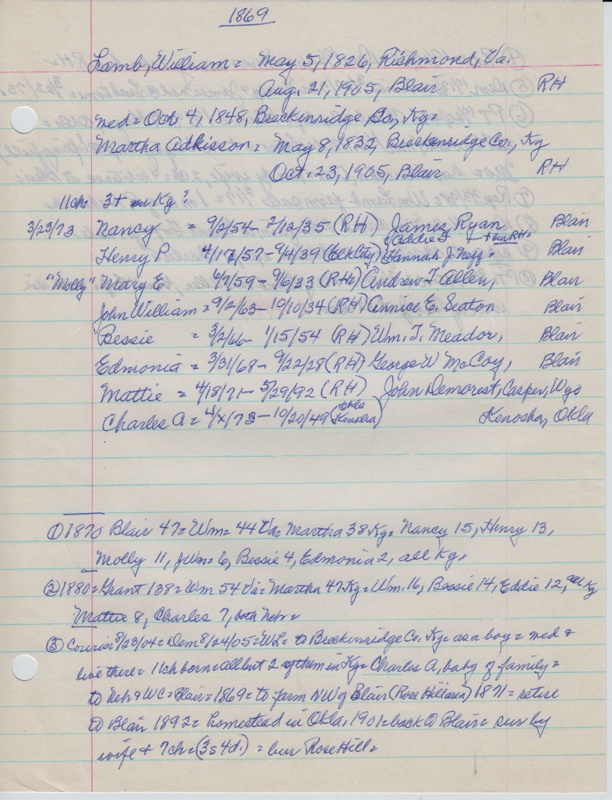 1869
Lamb, William = May 5, 1826, Richmond, Va.
Aug. 21, 1905, Blair RH
med = Oct 4, 1848, Breckenridge Co, Ky =
Martha Adkisson = May 8, 1832, Breckenridge Co, Ky
Oct. 23, 1905, Blair RH
11 ch 3+ in Ky ?
3/23/73 Nancy = 9/2/54 - 2/12/35 (RH) James Ryan Blair
Henry P 4/17/57 - 9/4/39 (Elk City) Addie S + Hannah J. Blair
"Molly" Mary E 4/7/59 - 9/6/33 (RH) Andrew T Allen, Blair
John William = 9/2/63 - 10/10/34 (RH) Annice E. Seaton Blair
Bessie = 3/2/66 - 1/15/54 (RH) Wm. T. Meador, Blair
Edmonia = 3/31/68 - 9/22/28 (RH) George W McCoy, Blair
Mattie = 4/18/71 - 5/29/92 (RH) John Demorest, Casper, Wyo
Charles A = 4/x/73 - 10/20/49 (Okla Kenosha) Kenosha, Okla
① 1870 Blair 47 = Wm = 44 Va = Martha 38 Ky = Nancy 15, Henry 13,
Molly 11, J Wm = 6, Bessie 4, Edmonia 2, all Ky,
② 1880 = Grant 138 = Wm 54 Va = Martha 47 Ky = Wm. 16, Bessie 14, Eddie 12, all Ky
Mattie 8, Charles 7, both Neb =
③ Courier 8/29/04 = Dem 8/24/05 = WL = to Breckenridge Co, Ky = as a boy = med +
live there = 11 ch born = all but 2 of them in Ky = Charles A, baby of family =
to Neb + WC = Blair = 1869 = to farm NW of Blair (Rose Hill area) 1871 = retire
to Blair 1892 = homestead in Okla. 1901 = back to Blair = sur by
wife + 7 ch = (3s 4d.) = bur Rose Hill =